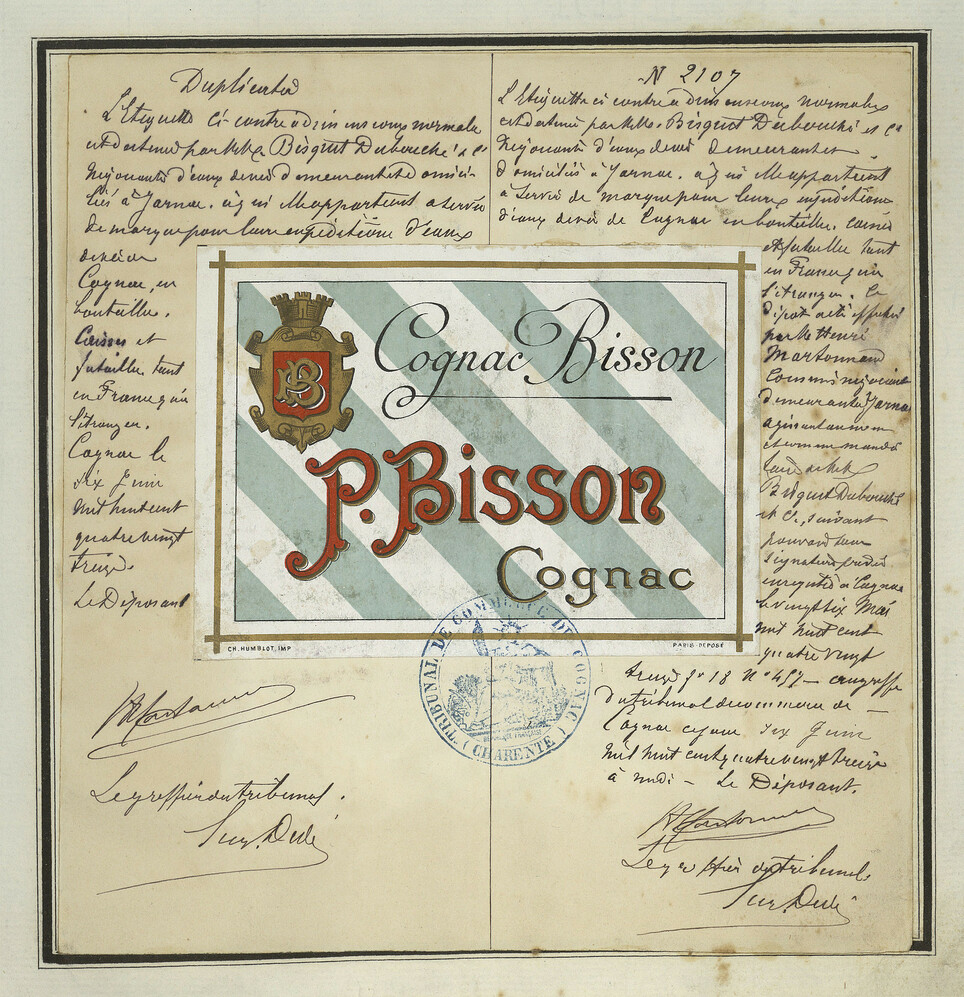 Duplicata
L'Etiquette ci contre a dimensions normales
est détenue par MM. Bisquit Dubouché & Cie
Négociants d'eaux de vie demeurant et domici-
liés à Jarnac. à qui elle appartient a servir
de marque pour leurs expéditions d'eaux
de vie de
Cognac, en
bouteilles.
Caisses et
futailles tant
en France qu'à
l'étranger.
Cognac le
six Juin
mil huit cent
quatre vingt
treize.
Le Déposant
Le greffier du tribunal.
N 2107
L'Etiquette ci contre a dimensions normales
est détenue par MM. Bisquit Dubouché et Cie
Négociants d'eaux de vie demeurant et
domiciliés à Jarnac. à qui elle appartient
à servir de marque pour leurs expéditions
d'eaux de vie de Cognac en bouteilles. caisses
et futailles tant
en France qu'à
l'étranger. Ce
dépôt a été effectué
par Mr Henri
Commis négociant
demeurant à Jarnac
agissant au nom
et comme manda
taire de MM.
Bisquit Dubouché
et Cie, suivant
pouvoir sous
signatures privées
enregistré à Cognac
le vingt six Mai
mil huit cent
quatre vingt
treize fo 18 No 457 — au greffe
du tribunal de commerce de —
Cognac ce jour six Juin
mil huit cent quatre vingt treize
à midi — Le Déposant.
Le greffier du tribunal.
Cognac Bisson
B
P. Bisson
Cognac
CH. HUMBLOT, IMP
PARIS-DEPOSÉ
TRIBUNAL DE COMMERCE DE COGNAC
(CHARENTE)